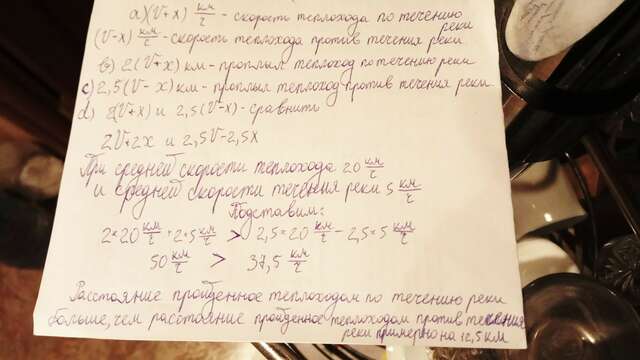 а)(V+x) км/ч - скорость теплохода по течению реки
(V-x) км/ч - скорость теплохода против течения реки
в) 2(V+x) км - проплыл теплоход по течению реки
с) 2,5(V-x) км - проплыл теплоход против течения реки
d) 2(V+x) и 2,5(V-x) - сравнить
2V+2x и 2,5V-2,5x
При средней скорости теплохода 20 км/ч
и средней скорости течения реки 5 км/ч
Подставим:
2*20 км/ч + 2*5 км/ч > 2,5*20 км/ч - 2,5*5 км/ч
50 км/ч > 37,5 км/ч
Расстояние пройденное теплоходом по течению реки
больше, чем расстояние пройденное теплоходом против течения
реки примерно на 12,5 км